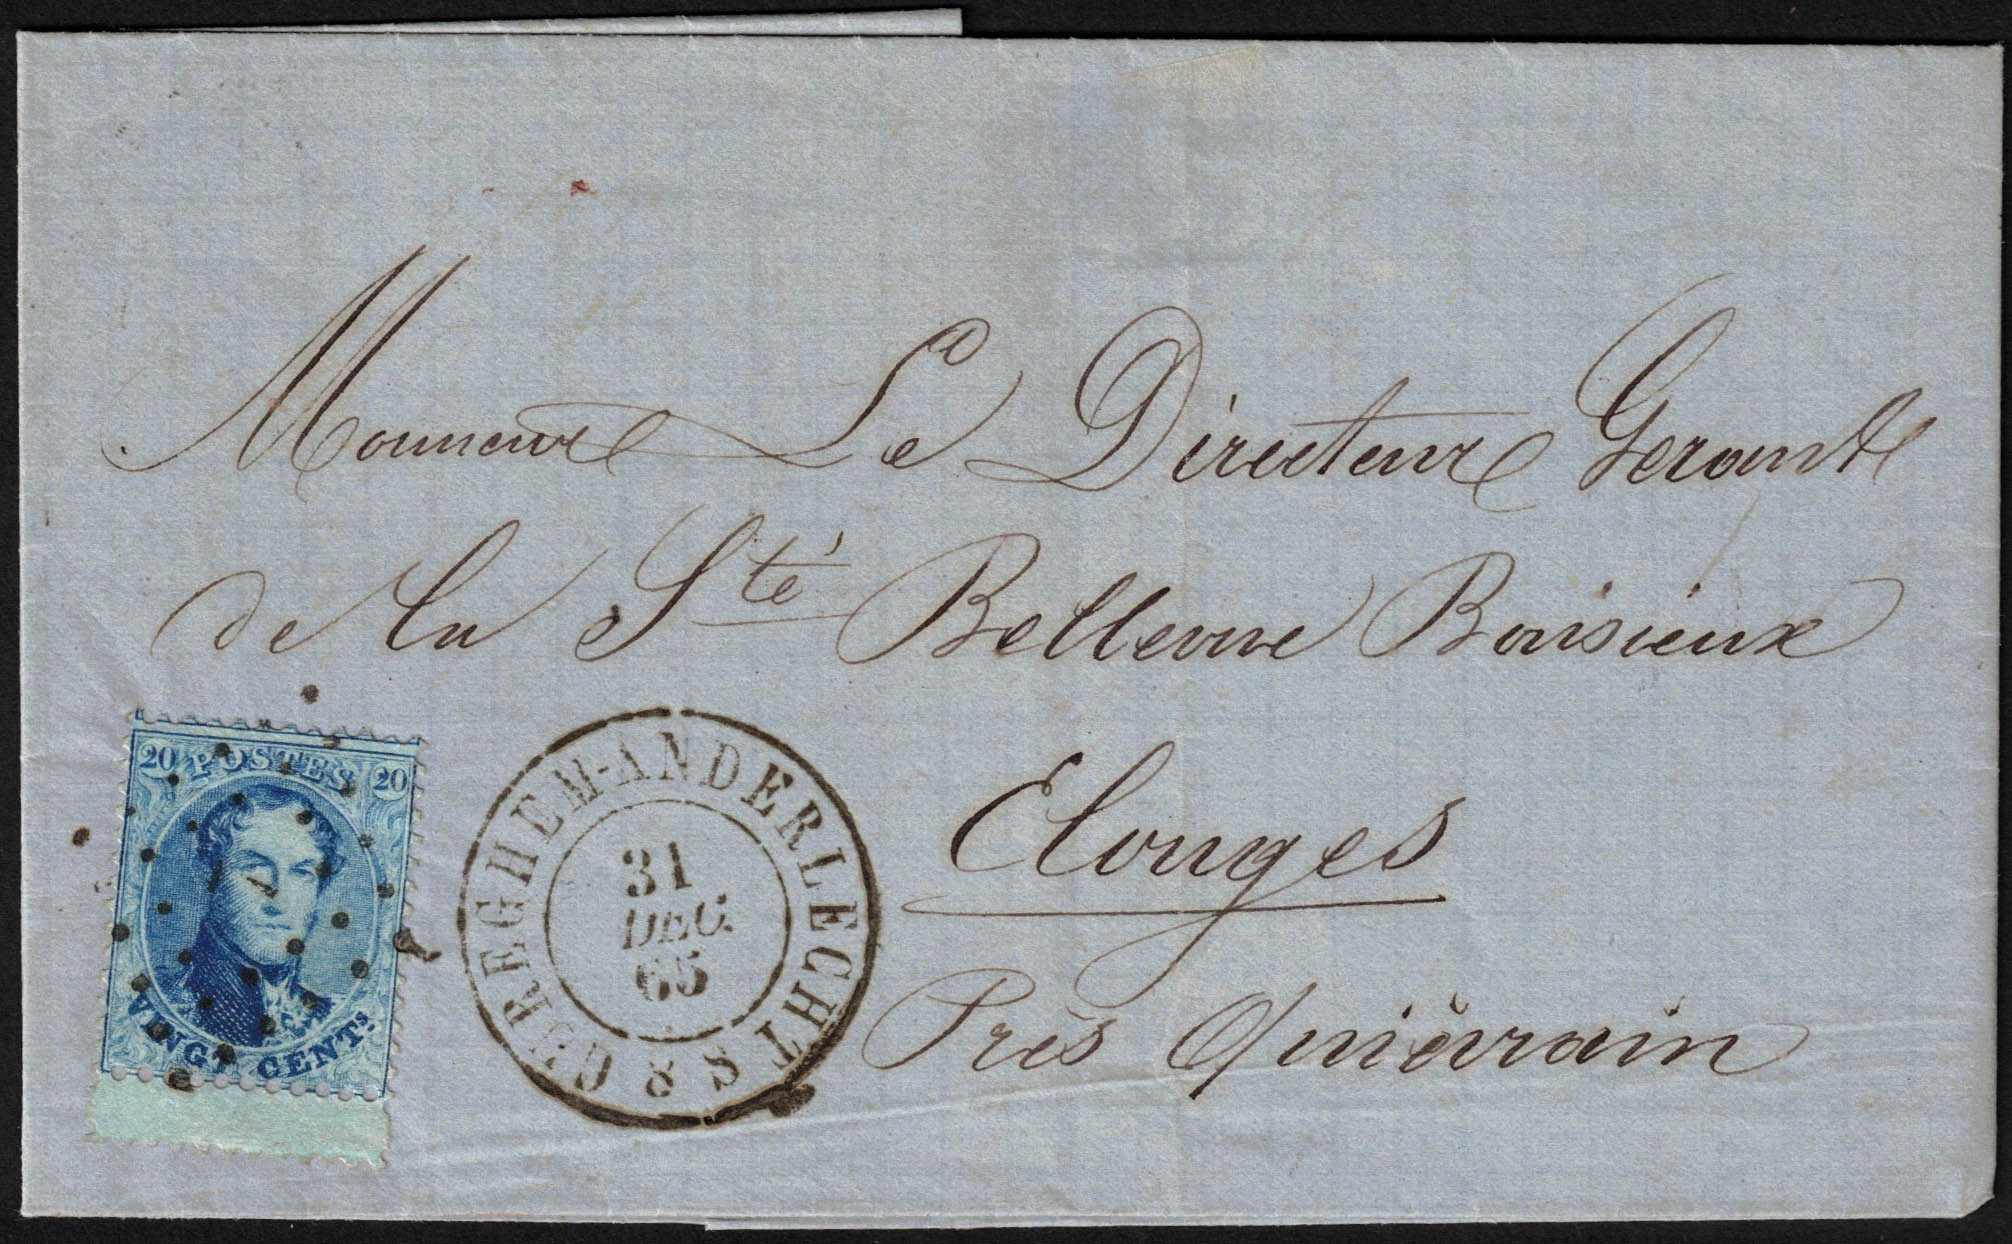 Monsieur Le Directeur Gerant
de la Sté Bellevue Baisieux
Elouges
Près Quiévrain
20 POSTES 20
VINGT CENTS.
CUREGHEM-ANDERLECHT
31
DEC.
65
8 S